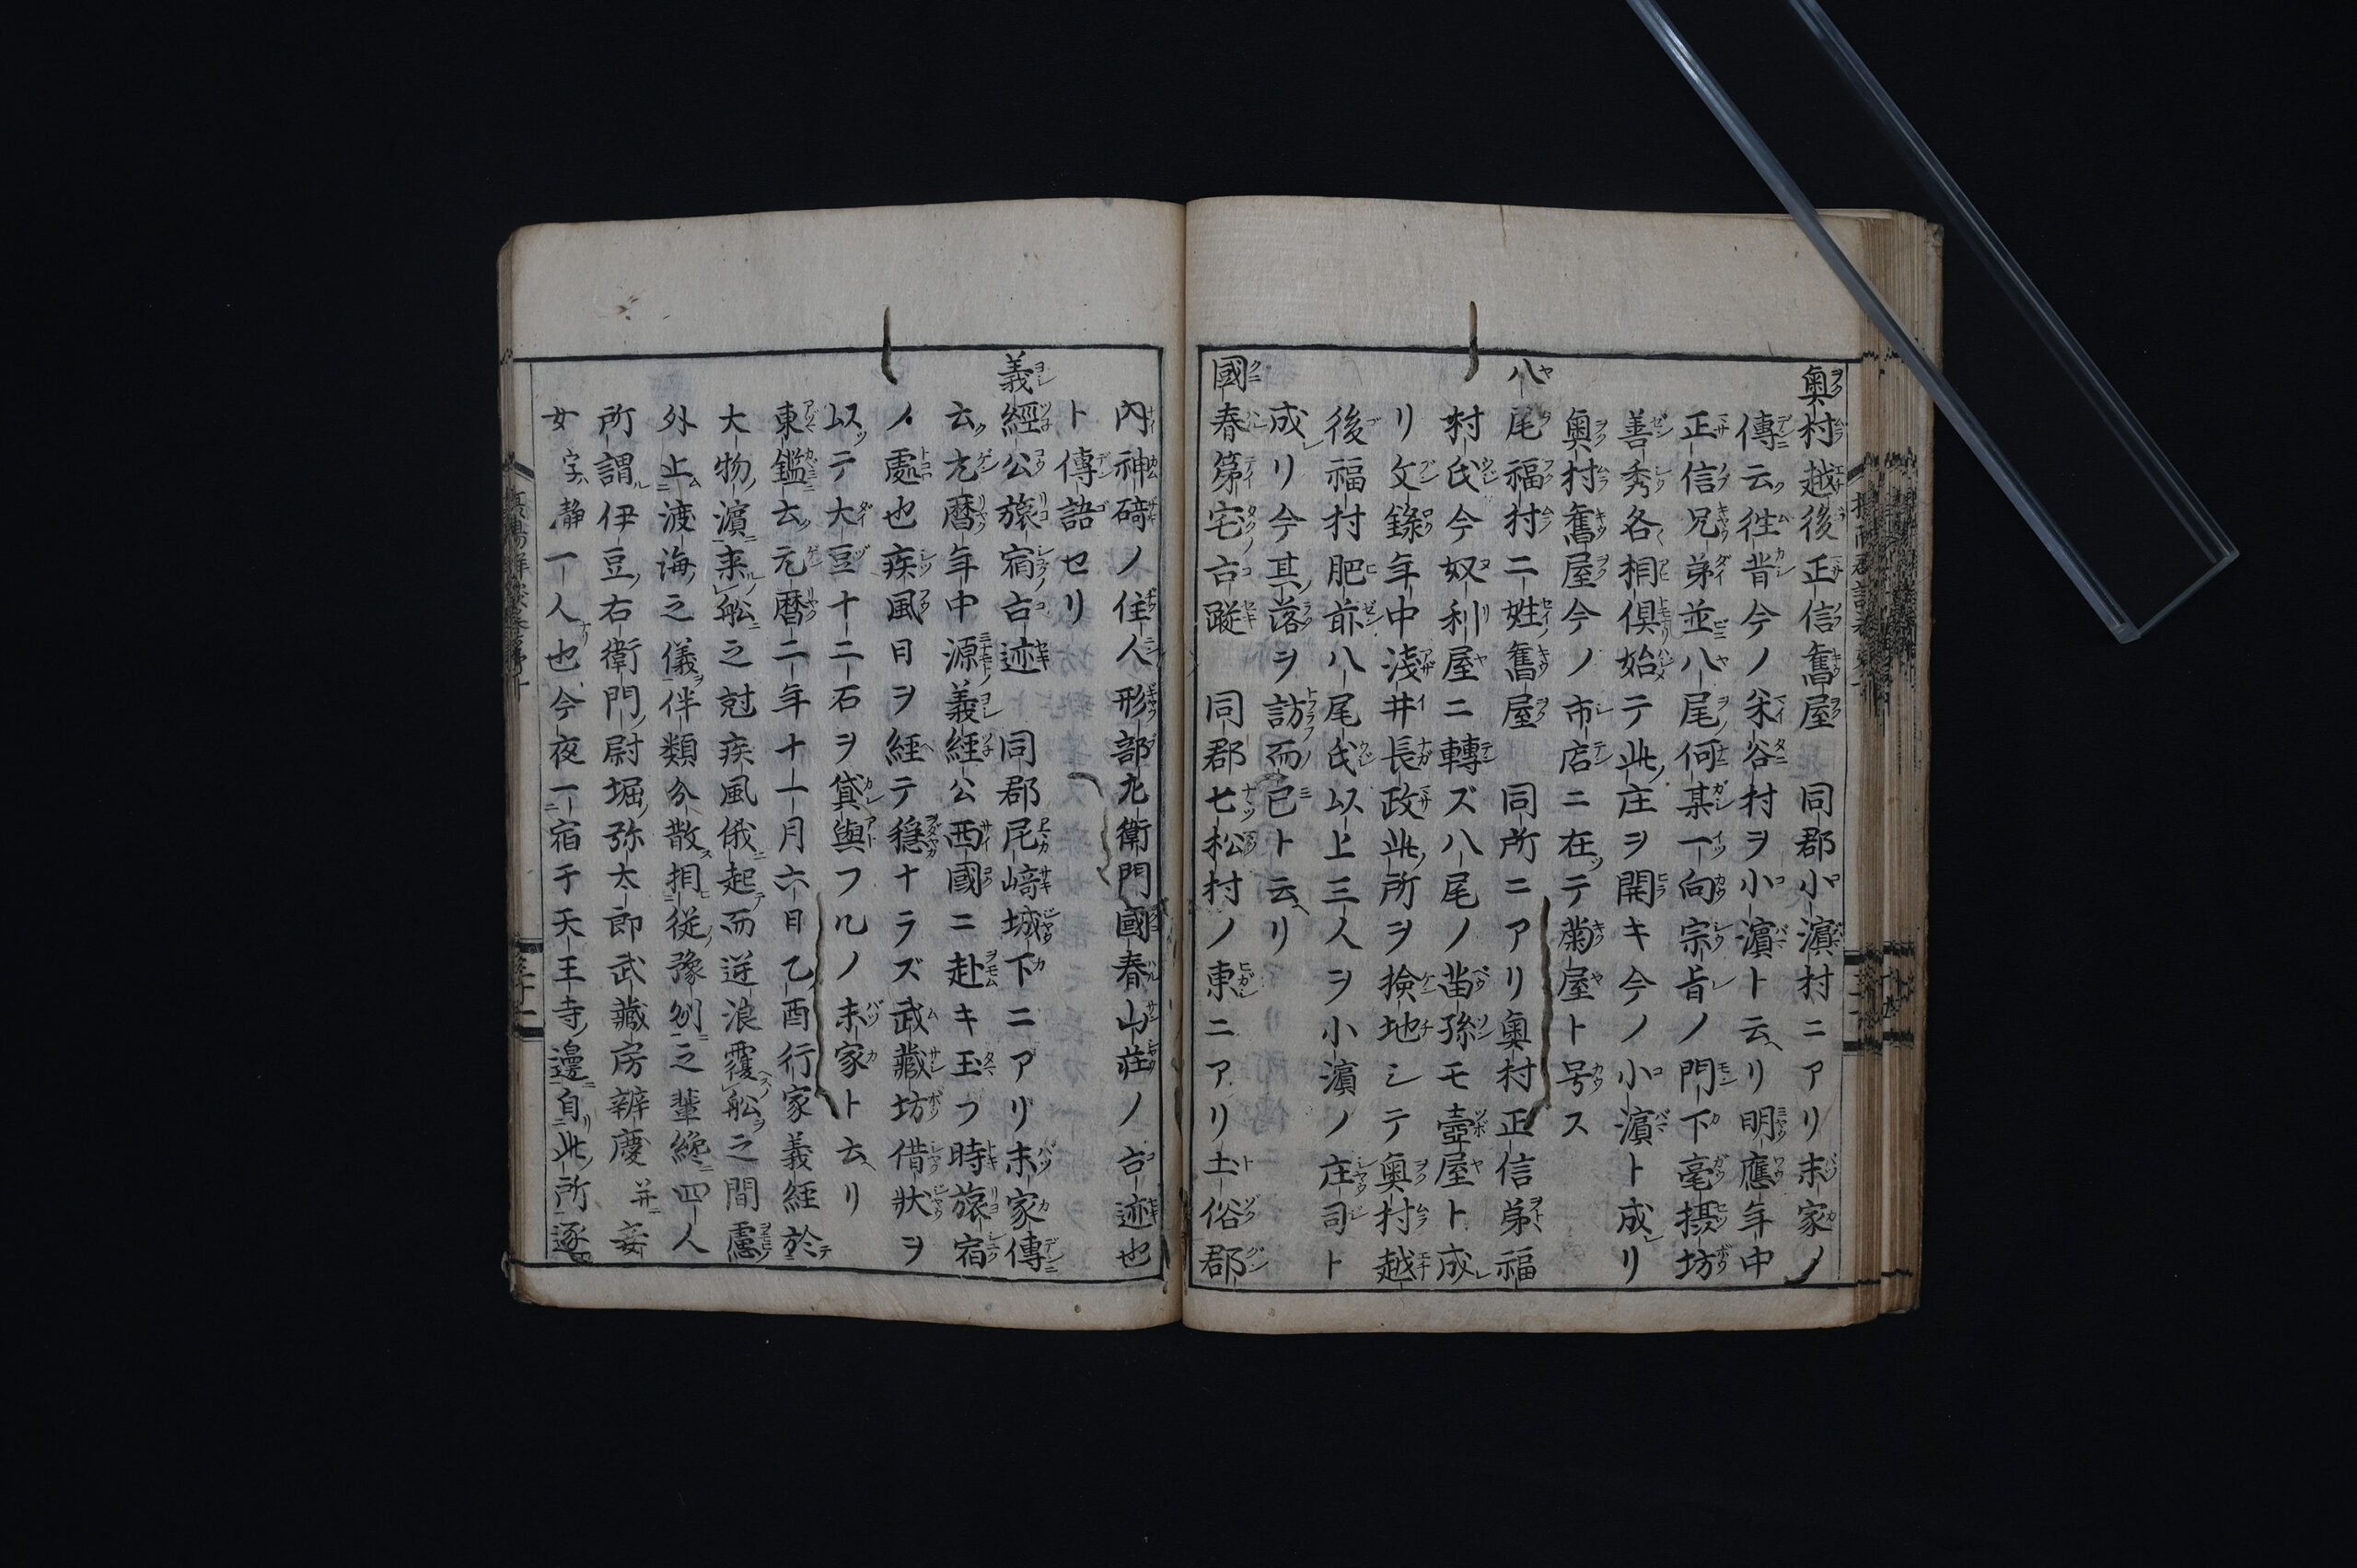 奧村越後正信舊屋　同郡小濵村ニアリ末家ノ
傳云徃昔今ノ米谷村ヲ小濵ト云リ明應年中
正信兄弟並八尾何某一向宗旨ノ門下毫摂坊
善秀各相倶始テ此庄ヲ開キ今ノ小濵ト成リ
奧村舊屋今ノ市店ニ在テ菊屋ト号ス
八尾福村二姓舊屋　同所ニアリ奧村正信弟福
村氏今奴利屋ニ轉ズ八尾ノ苗孫モ壺屋ト成
リ文錄年中淺井長政此所ヲ撿地シテ奧村越
後福村肥前八尾氏以上三人ヲ小濵ノ庄司ト
成リ今其落ヲ訪而已ト云リ
國春第宅古蹝　同郡七松村ノ東ニアリ土俗郡
内神碕ノ住人形部九衛門國春山莊ノ古迹也
ト傳語セリ
義經公旅宿古迹　同郡尼﨑城下ニアリ末家傳
云元曆年中源義經公西國ニ赴キ玉フ時旅宿
ノ處也疾風日ヲ経テ穏ナラズ武藏坊借狀ヲ
以テ大豆十二石ヲ貸與フ凢ノ末家ト云リ
東鑑云元曆二年十一月六日乙酉行家義経於
大物濵来舩之尅疾風俄起而逆浪覆舩之間慮
外止渡海之儀伴類分散相從豫刕之輩纔四人
所謂伊豆右衛門尉堀弥太郎武藏房辨慶并妾
女字静一人也今夜一宿于天王寺邊自此所逐